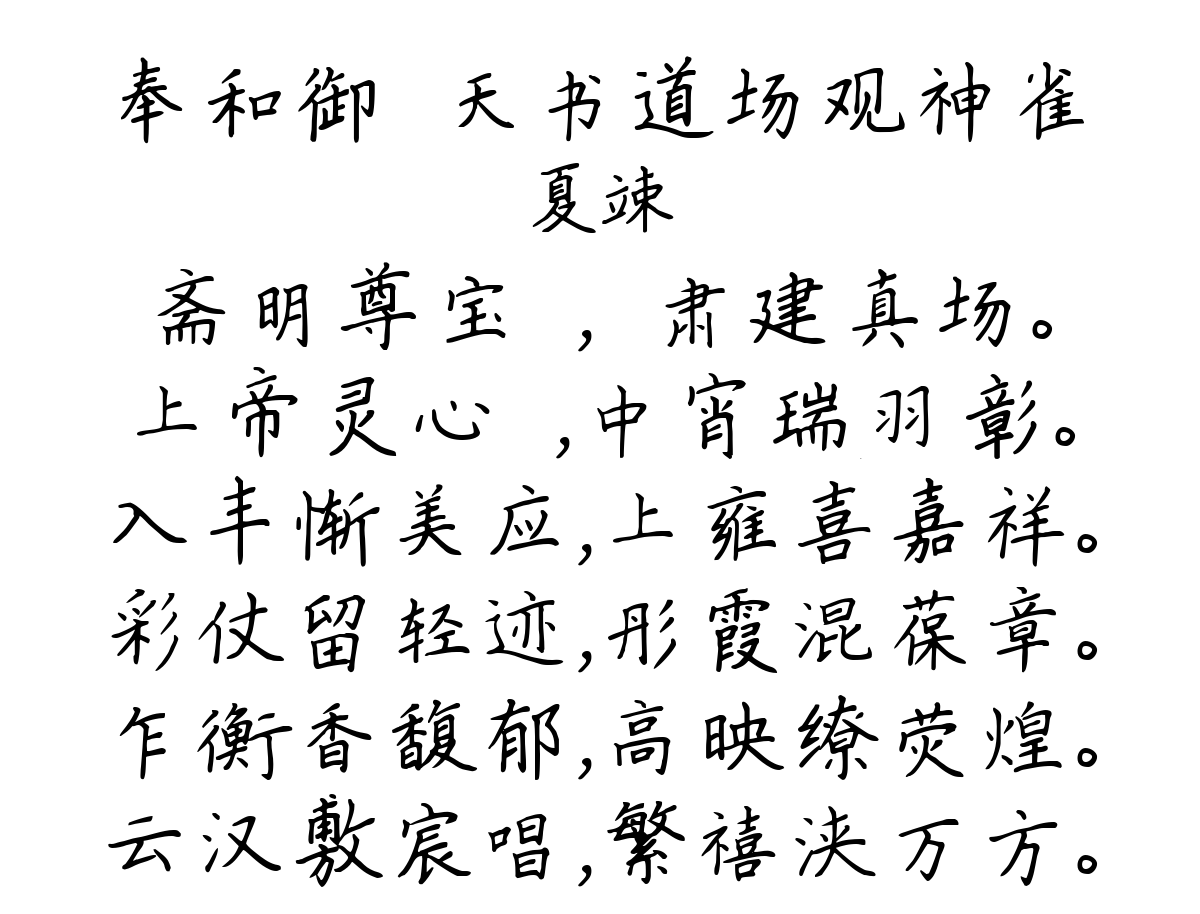 奉和御 天书道场观神雀
夏竦
斋明尊宝 ，肃建真场。
上帝灵心 ，中宵瑞羽彰。
入丰惭美应，上雍喜嘉祥。
彩仗留轻迹，彤霞混葆章。
乍衡香馥郁，高映缭荧煌。
云汉敷宸唱，繁禧浃万方。